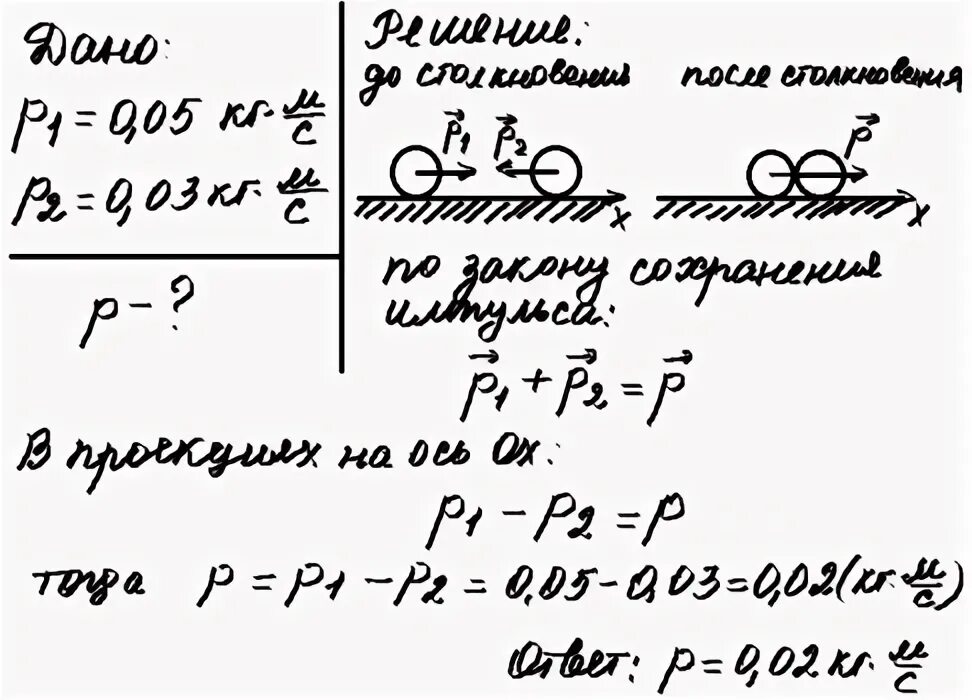 Дано:
p1 = 0,05 кг·м/с
p2 = 0,03 кг·м/с
p - ?
Решение:
до столкновения
после столкновения
p⃗1 p⃗2
x
p⃗
x
по закону сохранения
импульса:
p⃗1 + p⃗2 = p⃗
В проекциях на ось Ox:
p1 - p2 = p
тогда p = p1 - p2 = 0,05 - 0,03 = 0,02 (кг·м/с)
Ответ: p = 0,02 кг·м/с